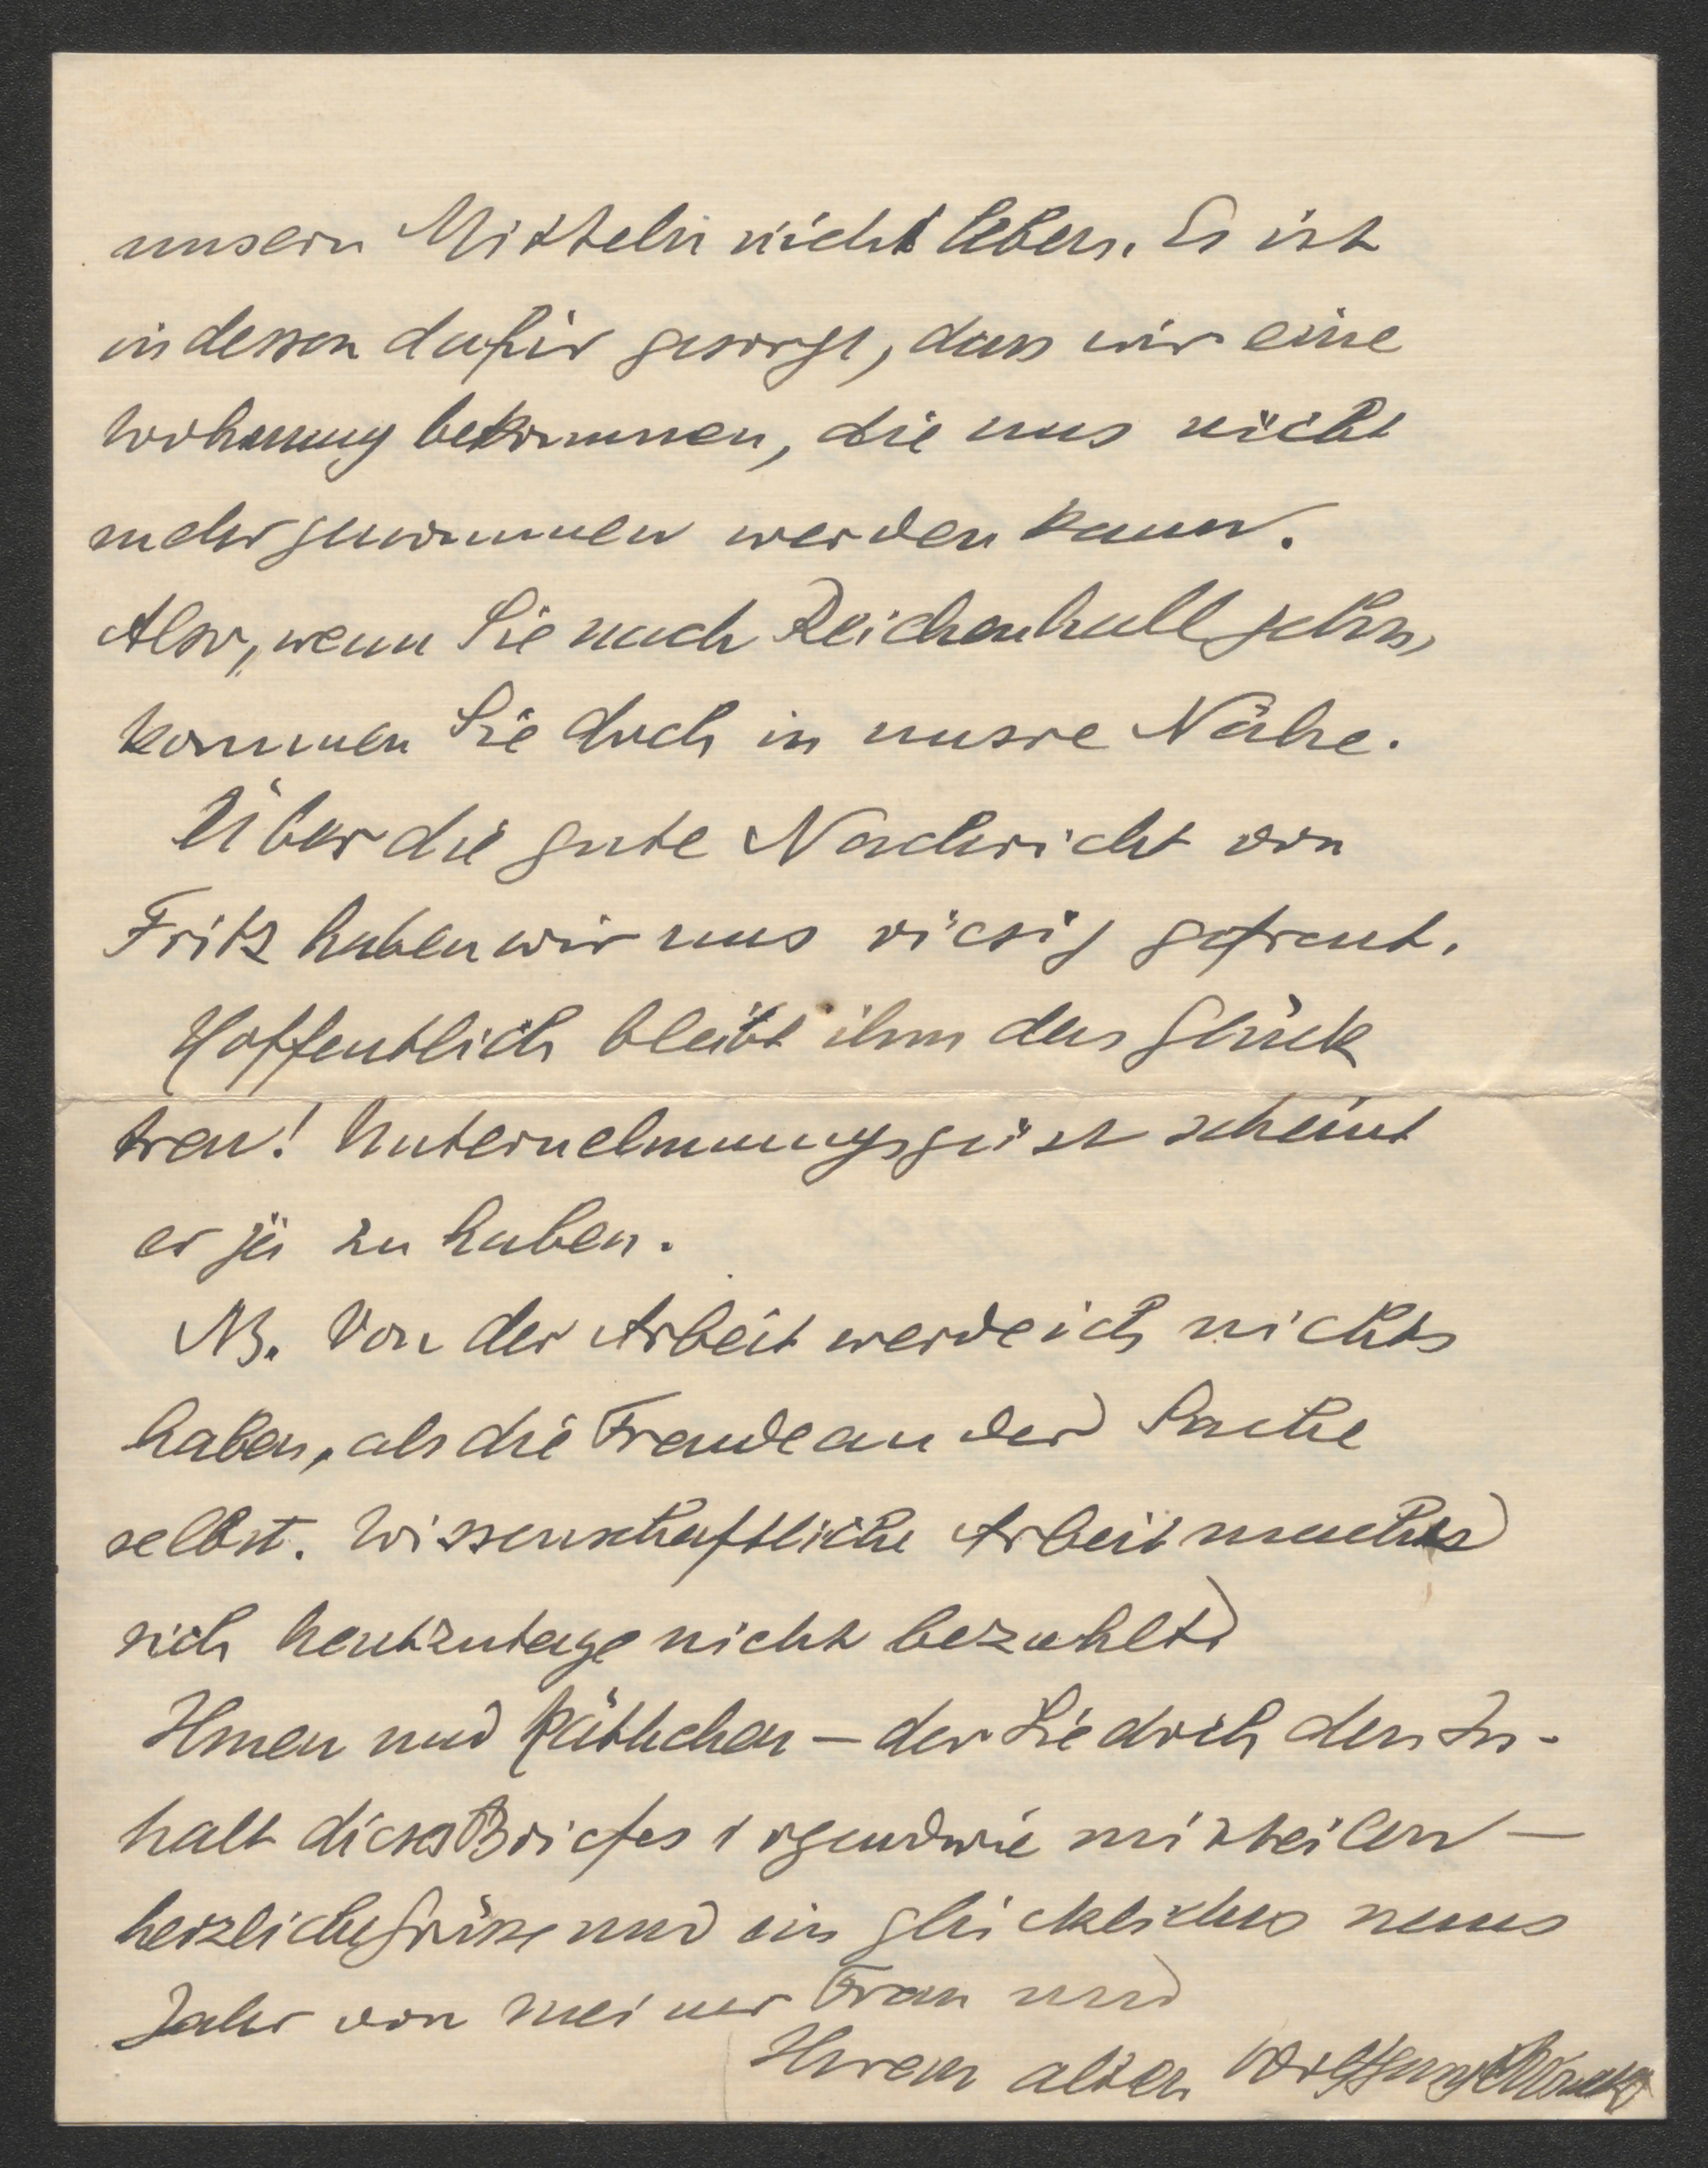 unsern Mitteln nicht leben. Es ist
indessen dafür gesorgt, dass wir eine
Wohnung bekommen, die uns nicht
mehr genommen werden kann.
Also, wenn Sie nach Reichenhall gehen,
kommen Sie doch in unsre Nähe.
Über die gute Nachricht von
Fritz haben wir uns riesig gefreut.
Hoffentlich bleibt ihm das Glück
treu! Unternehmungsgeist scheint
er ja zu haben.
NB. Von der Arbeit werde ich nichts
haben, als die Freude an der Sache
selbst. Wissenschaftliche Arbeit macht
sich heutzutage nicht bezahlt
Ihnen und Käthchen – der Sie doch den In-
halt dieses Briefes irgendwie mitteilen –
herzliche Grüsse und ein glückliches neues
Jahr von meiner Frau und
Ihrem alten